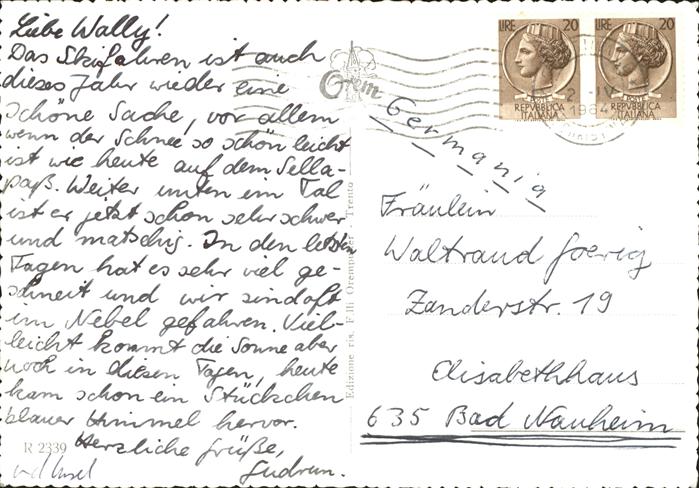 Liebe Wally!
Das Skifahren ist auch
dieses Jahr wieder eine
schöne Sache, vor allem
wenn der Schnee so schön leicht
ist wie heute auf dem Sella-
paß. Weiter unten im Tal
ist er jetzt schon sehr schwer
und matschig. In den letzten
Tagen hat es sehr viel ge-
schneit und wir sind oft
im Nebel gefahren. Viel-
leicht kommt die Sonne aber
noch in diesen Tagen, heute
kam schon ein Stückchen
blauer Himmel hervor.
Herzliche Grüße,
Gudrun.
R 2339
Edizione ris. F.lli Orempuller - Trento
Orem
LIRE 20
REPVBBLICA
ITALIANA
LIRE 20
REPVBBLICA
ITALIANA
2 IV
1964
Germania
Fräulein
Waltraud Goerig
Zanderstr. 19
Elisabethhaus
635 Bad Nauheim